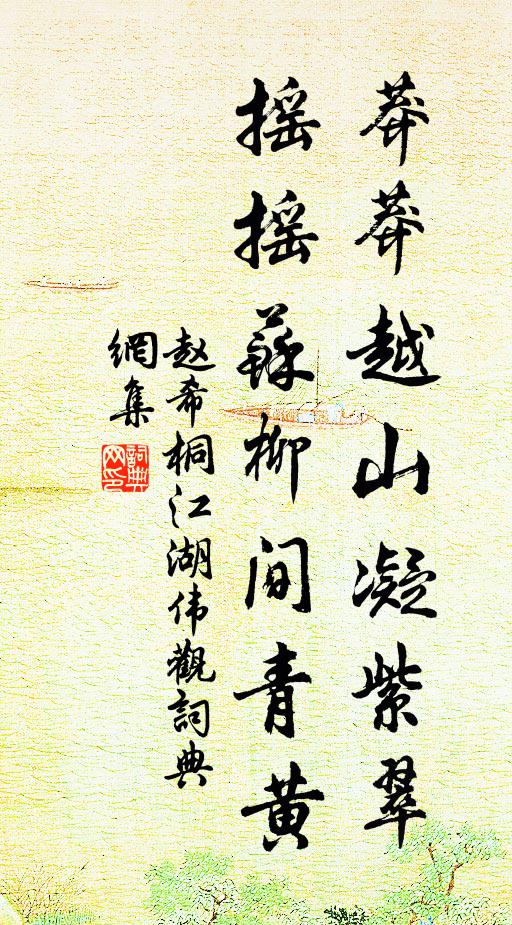 莽莽越山凝紫翠
摇摇蘇柳间青黄
赵希桐江湖伟觀詞典
網集
詞典
网印